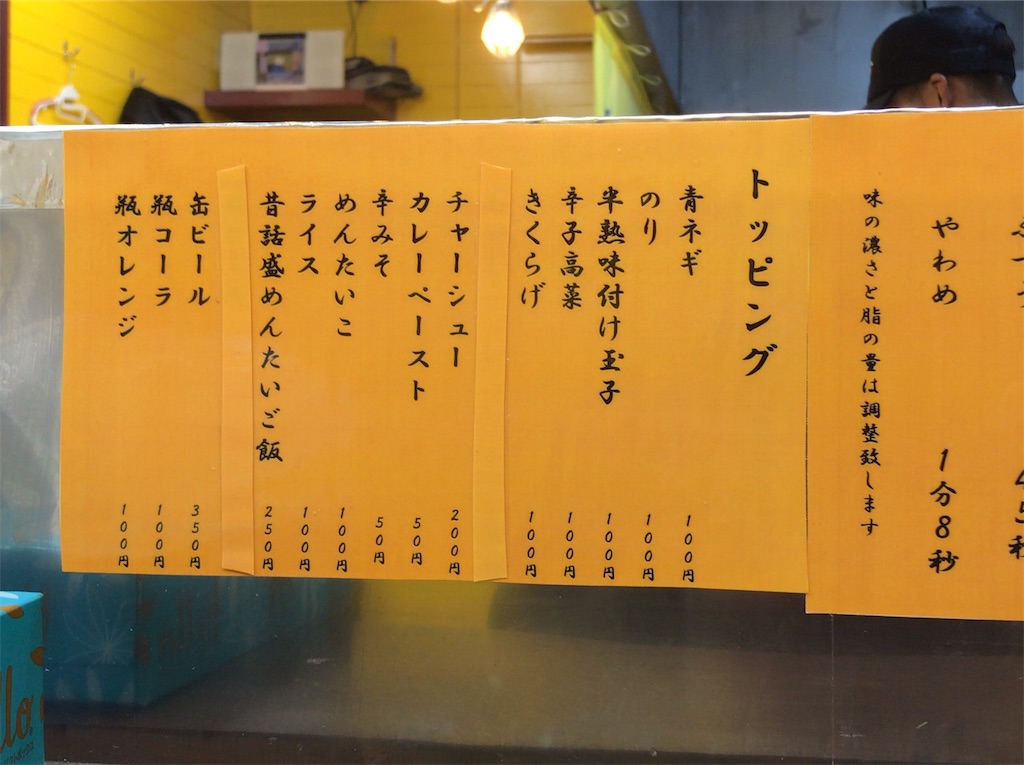 やわめ 1分8秒
味の濃さと脂の量は調整致します
トッピング
青ネギ 100円
のり 100円
半熟味付け玉子 100円
辛子高菜 100円
きくらげ 100円
チャーシュー 200円
カレーペースト 50円
辛みそ 50円
めんたいこ 100円
ライス 100円
昔話盛めんたいご飯 250円
缶ビール 350円
瓶コーラ 100円
瓶オレンジ 100円